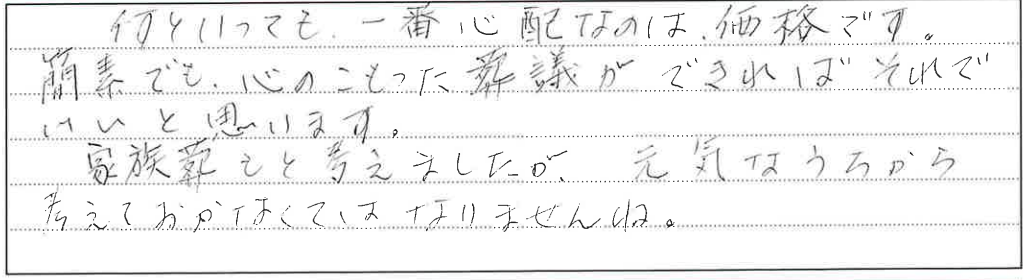 何といっても、一番心配なのは、価格です。
簡素でも、心のこもった葬議ができればそれで
いいと思います。
家族葬もと考えましたが、元気なうちから
考えておかなくてはなりませんね。